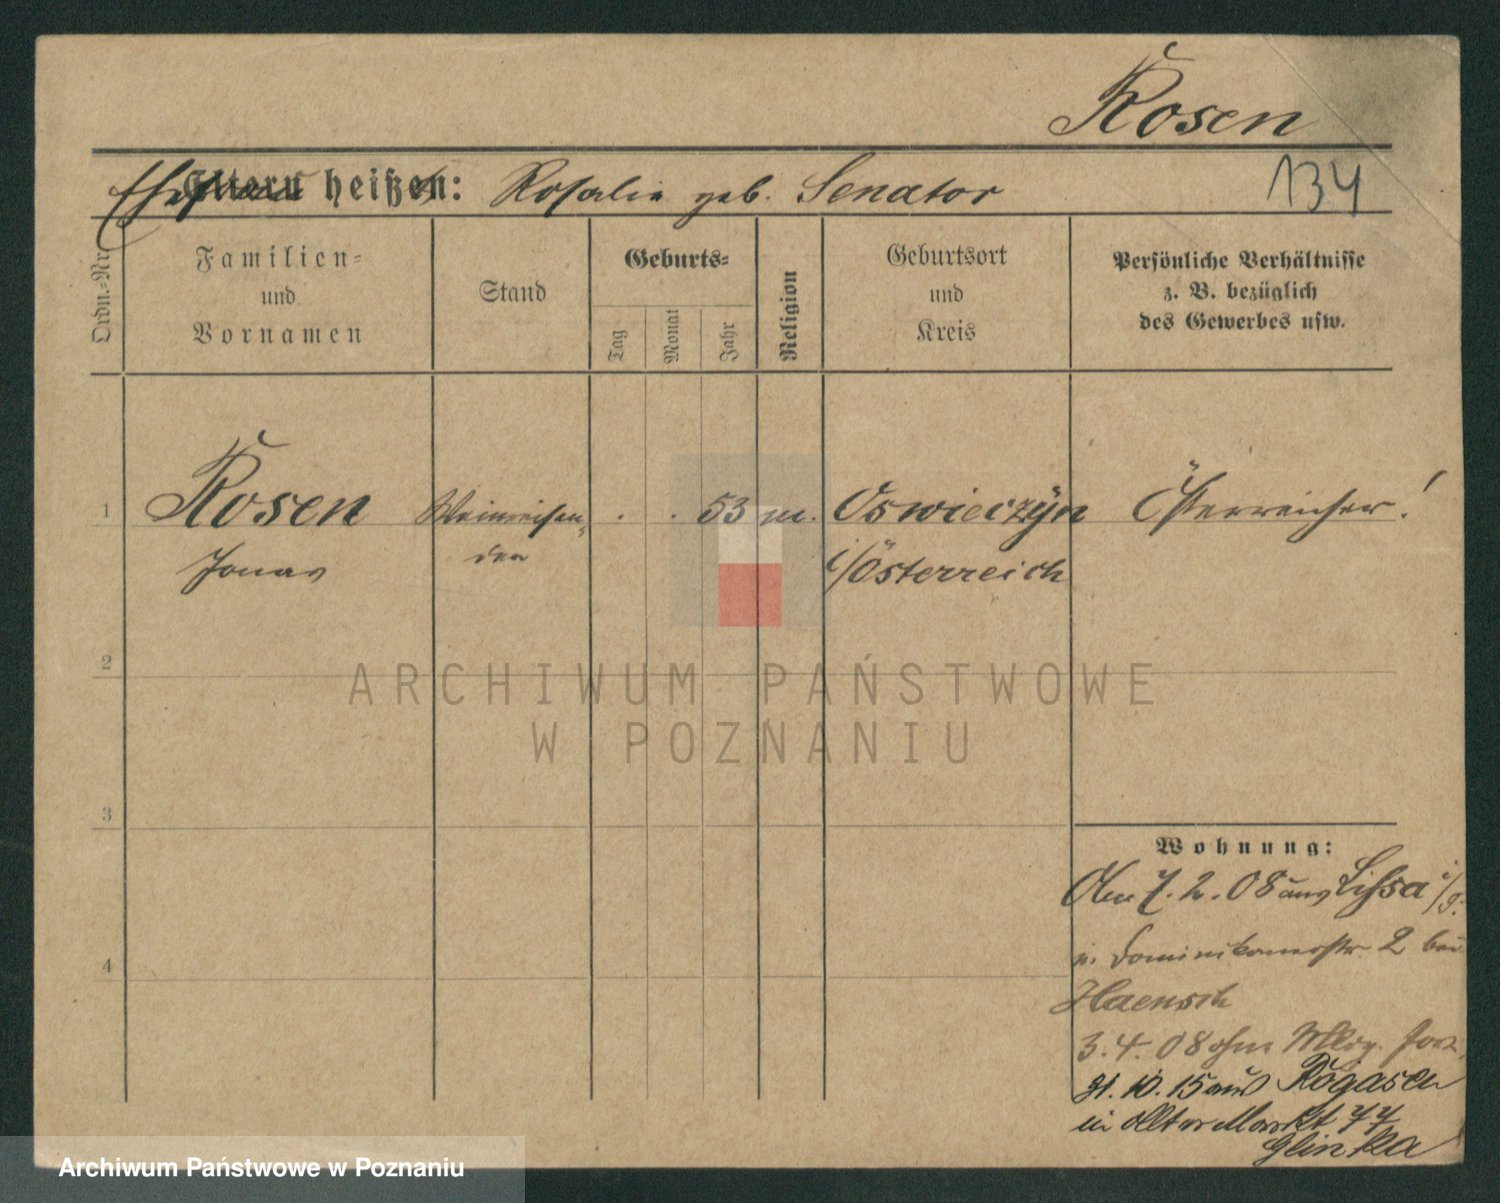 Rosen
134
Ehefrau heißt: Rosalie geb. Senator
Ordn.-Nr.
Familien-
und
Vornamen
Stand
Geburts-
Tag
Monat
Jahr
Religion
Geburtsort
und
Kreis
Persönliche Verhältnisse
z. B. bezüglich
des Gewerbes usw.
1
Rosen
Jonas
Weinreisen-
der
. . 53 m.
Oswieczÿn
i/Österreich
Österreicher!
2
3
4
Wohnung:
7. 2. 08 aus Lissa i/P.
n. Dominikanerstr. 2 bei
Haensch
3. 4. 08 ohne Mldg. fort
31. 10. 15 aus Rogasen
in Alter Markt 77
Glinka
ARCHIWUM PAŃSTWOWE
W POZNANIU
Archiwum Państwowe w Poznaniu